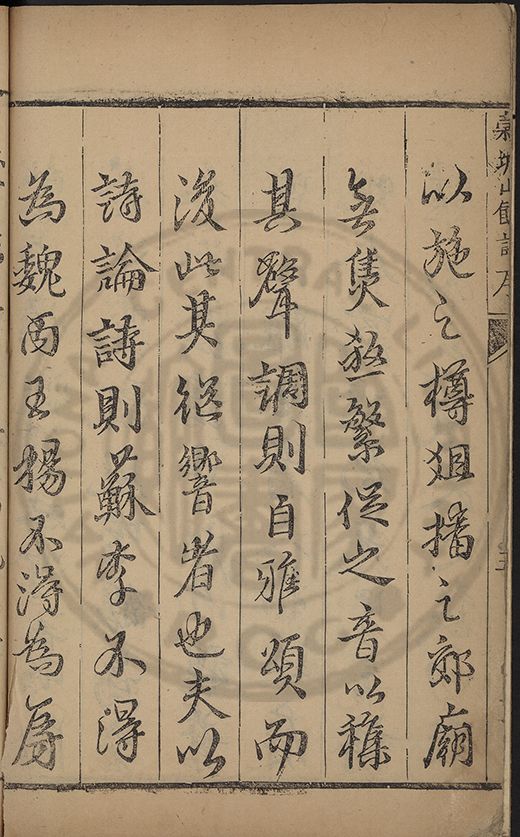 以施之樽俎播之郊廟
無焦殺繁促之音以
其聲調則自雅頌而
後此其絕響者也夫以
詩論詩則蘇李不得
為魏而王楊不得為唐